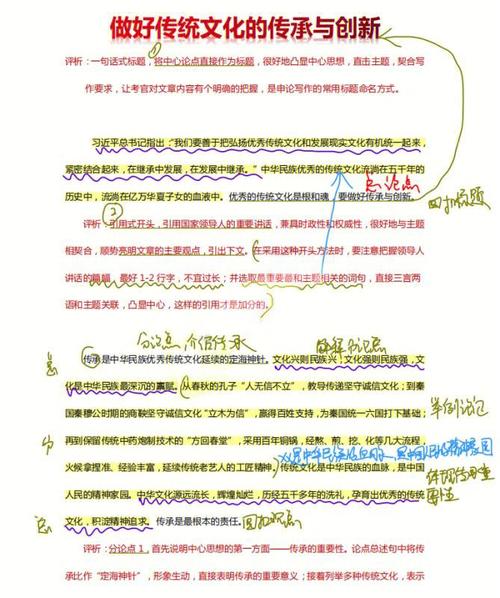 做好传统文化的传承与创新
①
评析：一句话式标题，将中心论点直接作为标题，很好地凸显中心思想，直击主题，契合写
作要求，让考官对文章内容有个明确的把握，是申论写作的常用标题命名方式。
习近平总书记指出：“我们要善于把弘扬优秀传统文化和发展现实文化有机统一起来，
紧密结合起来，在继承中发展，在发展中继承。”中华民族优秀的传统文化流淌在五千年的
总论点
历史中，流淌在亿万华夏子女的血液中。优秀的传统文化是根和魂，要做好传承与创新。
回扣标题
②
评析：引用式开头，引用国家领导人的重要讲话，兼具时政性和权威性，很好地与主题
相契合，顺势亮明文章的主要观点，引出下文。在采用这种开头方法时，要注意把握领导人
讲话的篇幅，最好 1-2 行字，不宜过长；并选取最重要最和主题相关的词句，直接三言两
语和主题关联，凸显中心，这样的引用才是加分的。
分论点，价值传承
解释论点
总
传承是中华民族优秀传统文化延续的定海神针。文化兴则民族兴，文化强则民族强，文
化是中华民族最深沉的禀赋。从春秋的孔子“人无信不立”，教导传递坚守诚信文化；到秦
国秦穆公时期的商鞅坚守诚信文化“立木为信”，赢得百姓支持，为秦国统一六国打下基础；
举例论证
分
再到保留传统中药炮制技术的“方回春堂”，采用百年铜锅，经熬、煎、挖、化等几大流程，
火候拿捏准、经验丰富，延续传统老艺人的工匠精神。传统文化是中华民族的血脉，是中国
人民的精神家园。中华文化源远流长，辉煌灿烂，历经五千多年的洗礼，孕育出优秀的传统
总
文化，积淀精神追求。传承是最根本的责任。
回扣观点
评析：分论点 1，首先说明中心思想的第一方面——传承的重要性。论点总述句中将传
承比作“定海神针”，形象生动，直接表明传承的重要意义；接着列举多种传统文化，表示